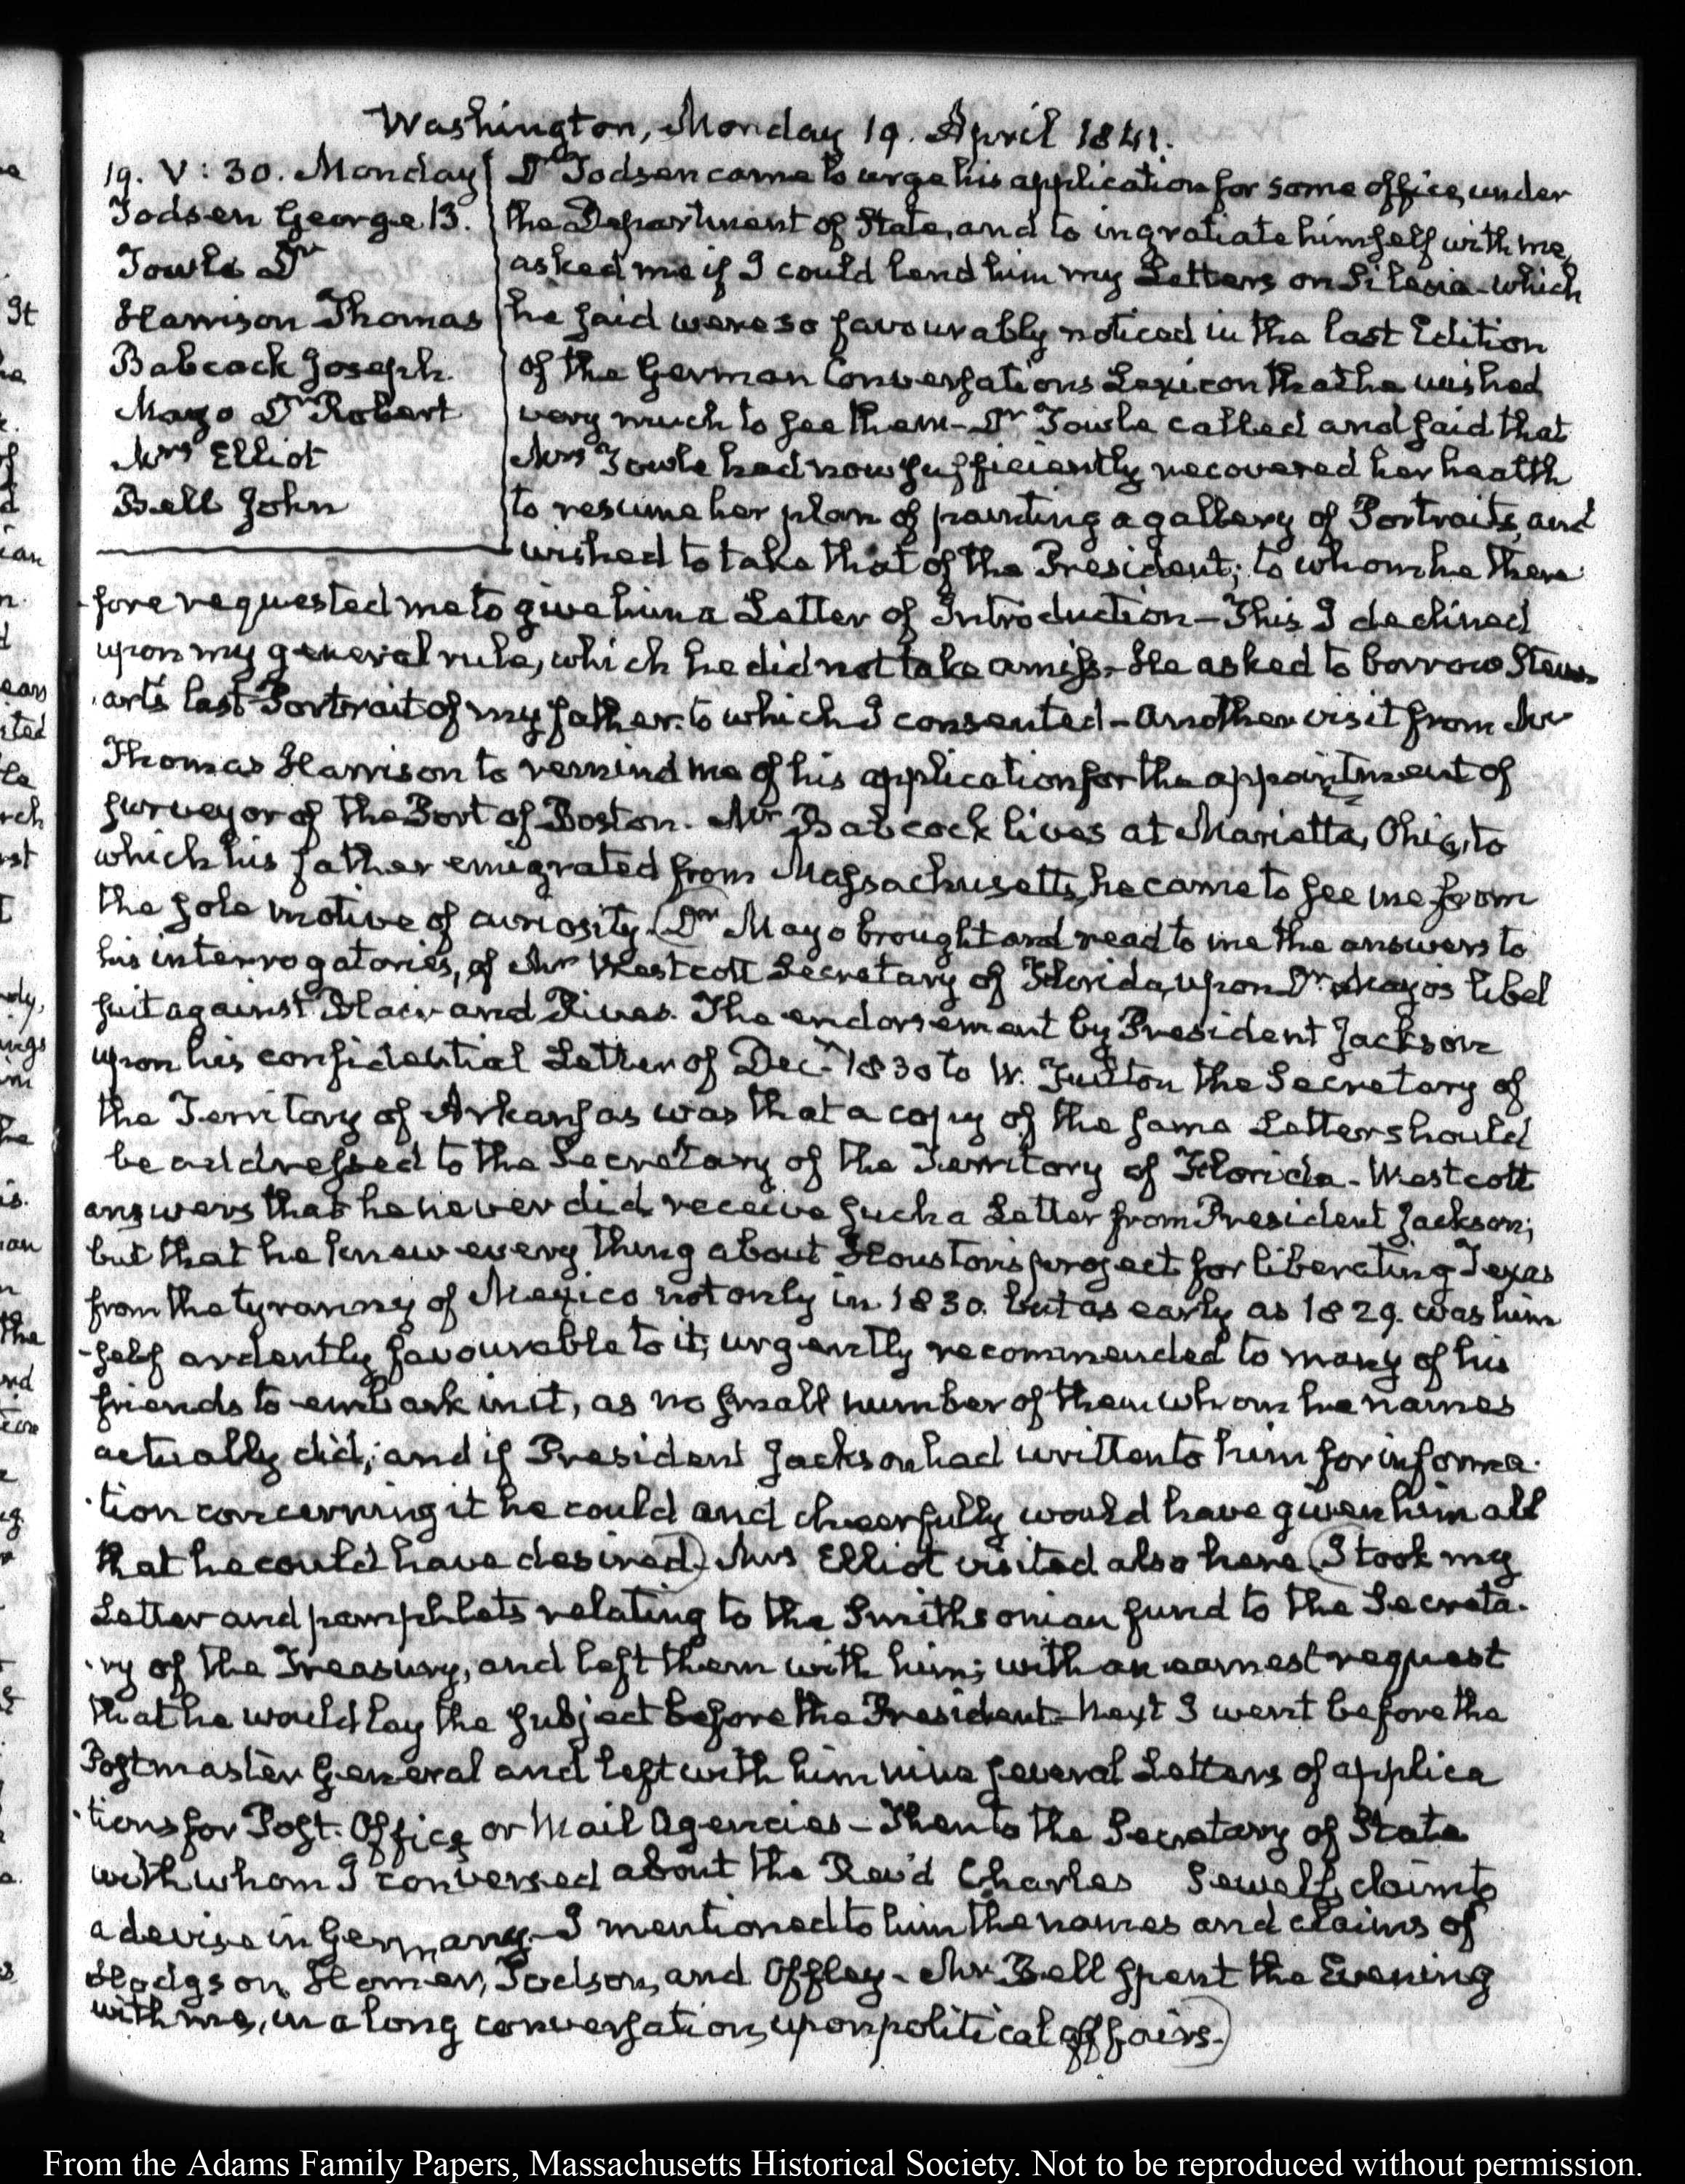 Washington, Monday 19. April 1841.
19. V: 30. Monday
Todsen George B.
Towle Dr
Harrison Thomas
Babcock Joseph.
Mayo Dr Robert
Mrs Elliot
Bell John
Dr Todsen came to urge his application for some office, under
the Department of State, and to ingratiate himself with me,
asked me if I could lend him my Letters on Silesia which
he said were so favourably noticed in the last Edition
of the German Conversations Lexicon that he wished
very much to see them – Dr Towle called and said that
Mrs Towle had now sufficiently recovered her health
to resume her plan of painting a gallery of Portraits, and
wished to take that of the President; to whom he there
-fore requested me to give him a Letter of Introduction – This I declined
upon my general rule, which he did not take amiss – He asked to borrow Stew-
-arts last Portrait of my father: to which I consented – Another visit from Mr
Thomas Harrison to remind me of his application for the appointment of
Surveyor of the Port of Boston. Mr Babcock lives at Marietta, Ohio, to
which his father emigrated from Massachusetts, he came to see me from
the sole motive of curiosity. (Dr Mayo brought and read to me the answers to
his interrogatories, of Mr Westcott Secretary of Florida, upon Dr Mayo's libel
suit against Blair and Rives. The endorsement by President Jackson
upon his confidential Letter of Decr 1830 to W. Fulton the Secretary of
the Territory of Arkansas was that a copy of the same Letter should
be addressed to the Secretary of the Territory of Florida – Westcott
answers that he never did receive such a Letter from President Jackson;
but that he knew every thing about Houston's project for liberating Texas
from the tyranny of Mexico not only in 1830. but as early as 1829. was him
-self ardently favourable to it; urgently recommended to many of his
friends to embark in it, as no small number of them whom he names
actually did; and if President Jackson had written to him for informa-
-tion concerning it he could and cheerfully would have given him all
that he could have desired) Mrs Elliot visited also here (I took my
Letter and pamphlets relating to the Smithsonian fund to the Secreta-
-ry of the Treasury, and left them with him; with an earnest request
that he would lay the subject before the President – Next I went before the
Postmaster General and left with him nine several Letters of applica
-tions for Post-Office or Mail Agencies – Then to the Secretary of State
with whom I conversed about the Rev'd Charles Sewell's claim to
a devise in Germany – I mentioned to him the names and claims of
Hodgson, Homer, Todson, and Offley – Mr Bell spent the Evening
with me, in a long conversation, upon political affairs.)
From the Adams Family Papers, Massachusetts Historical Society. Not to be reproduced without permission.